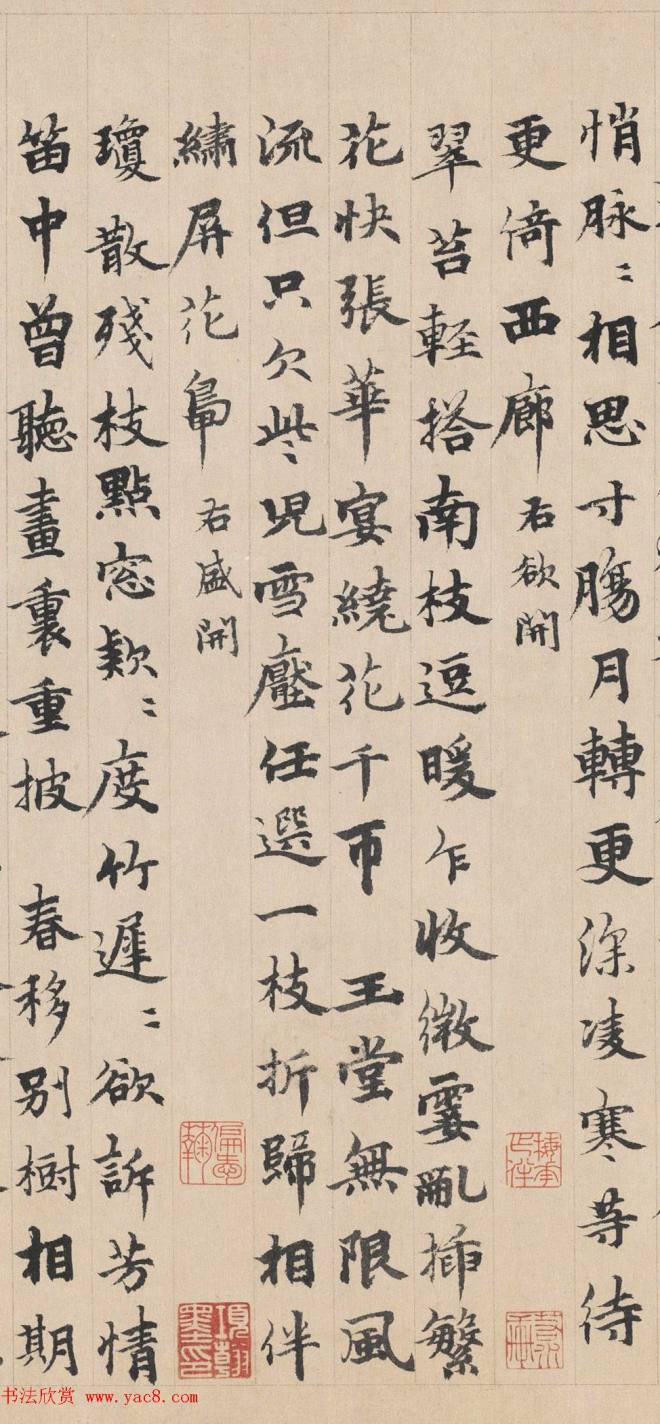 悄脉〻相思寸腸月轉更深凌寒等待
更倚西廊 右欲開
翠苔輕搭南枝逗暖乍收微霎亂插繁
花快張華宴繞花千帀 玉堂無限風
流但只欠些〻児雪壓任選一枝折歸相伴
繡屏花鴨 右盛開
瓊散殘枝點窓款〻度竹遲〻欲訴芳情
笛中曾聽畫裏重披 春移别樹相期
书法欣赏 www.yac8.com